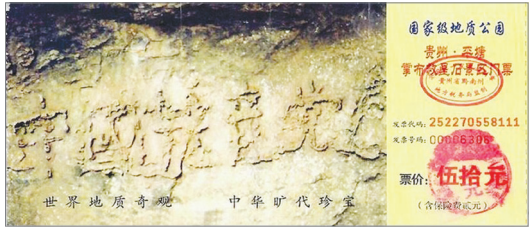 中国共产党
世界地质奇观 中华旷代珍宝
国家级地质公园
贵州·平塘
掌布藏字石景区门票
贵州省黔南州
发票代码: 252270558111
发票号码: 00006306
票价: 伍拾元
(含保险费贰元)